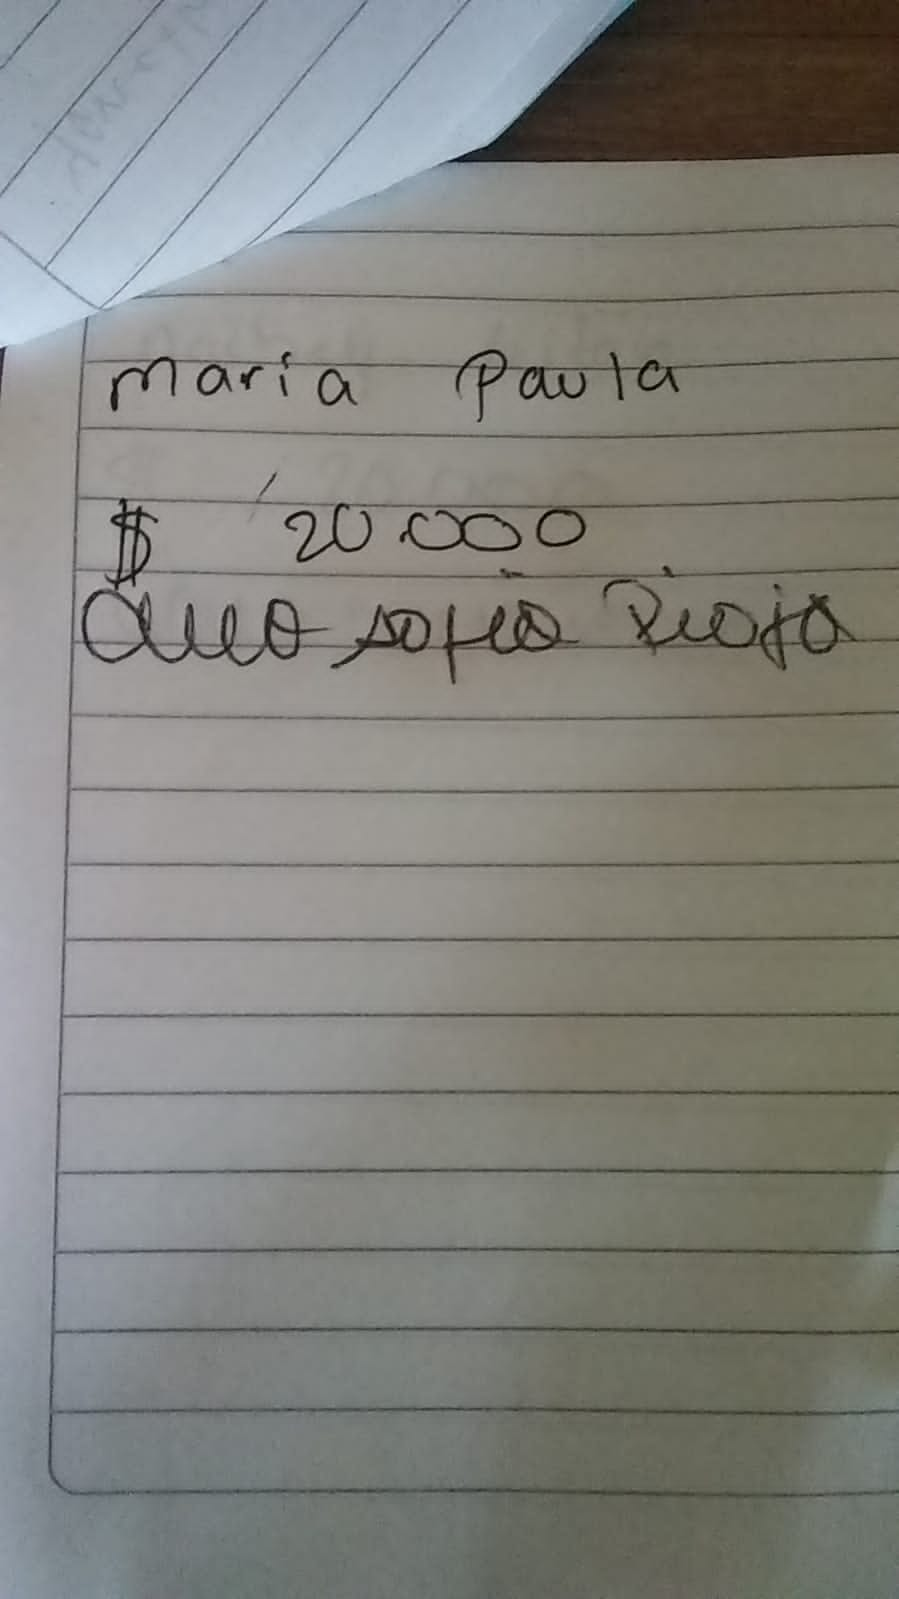 Maria Paula
$ 20.000
sofia Rioja